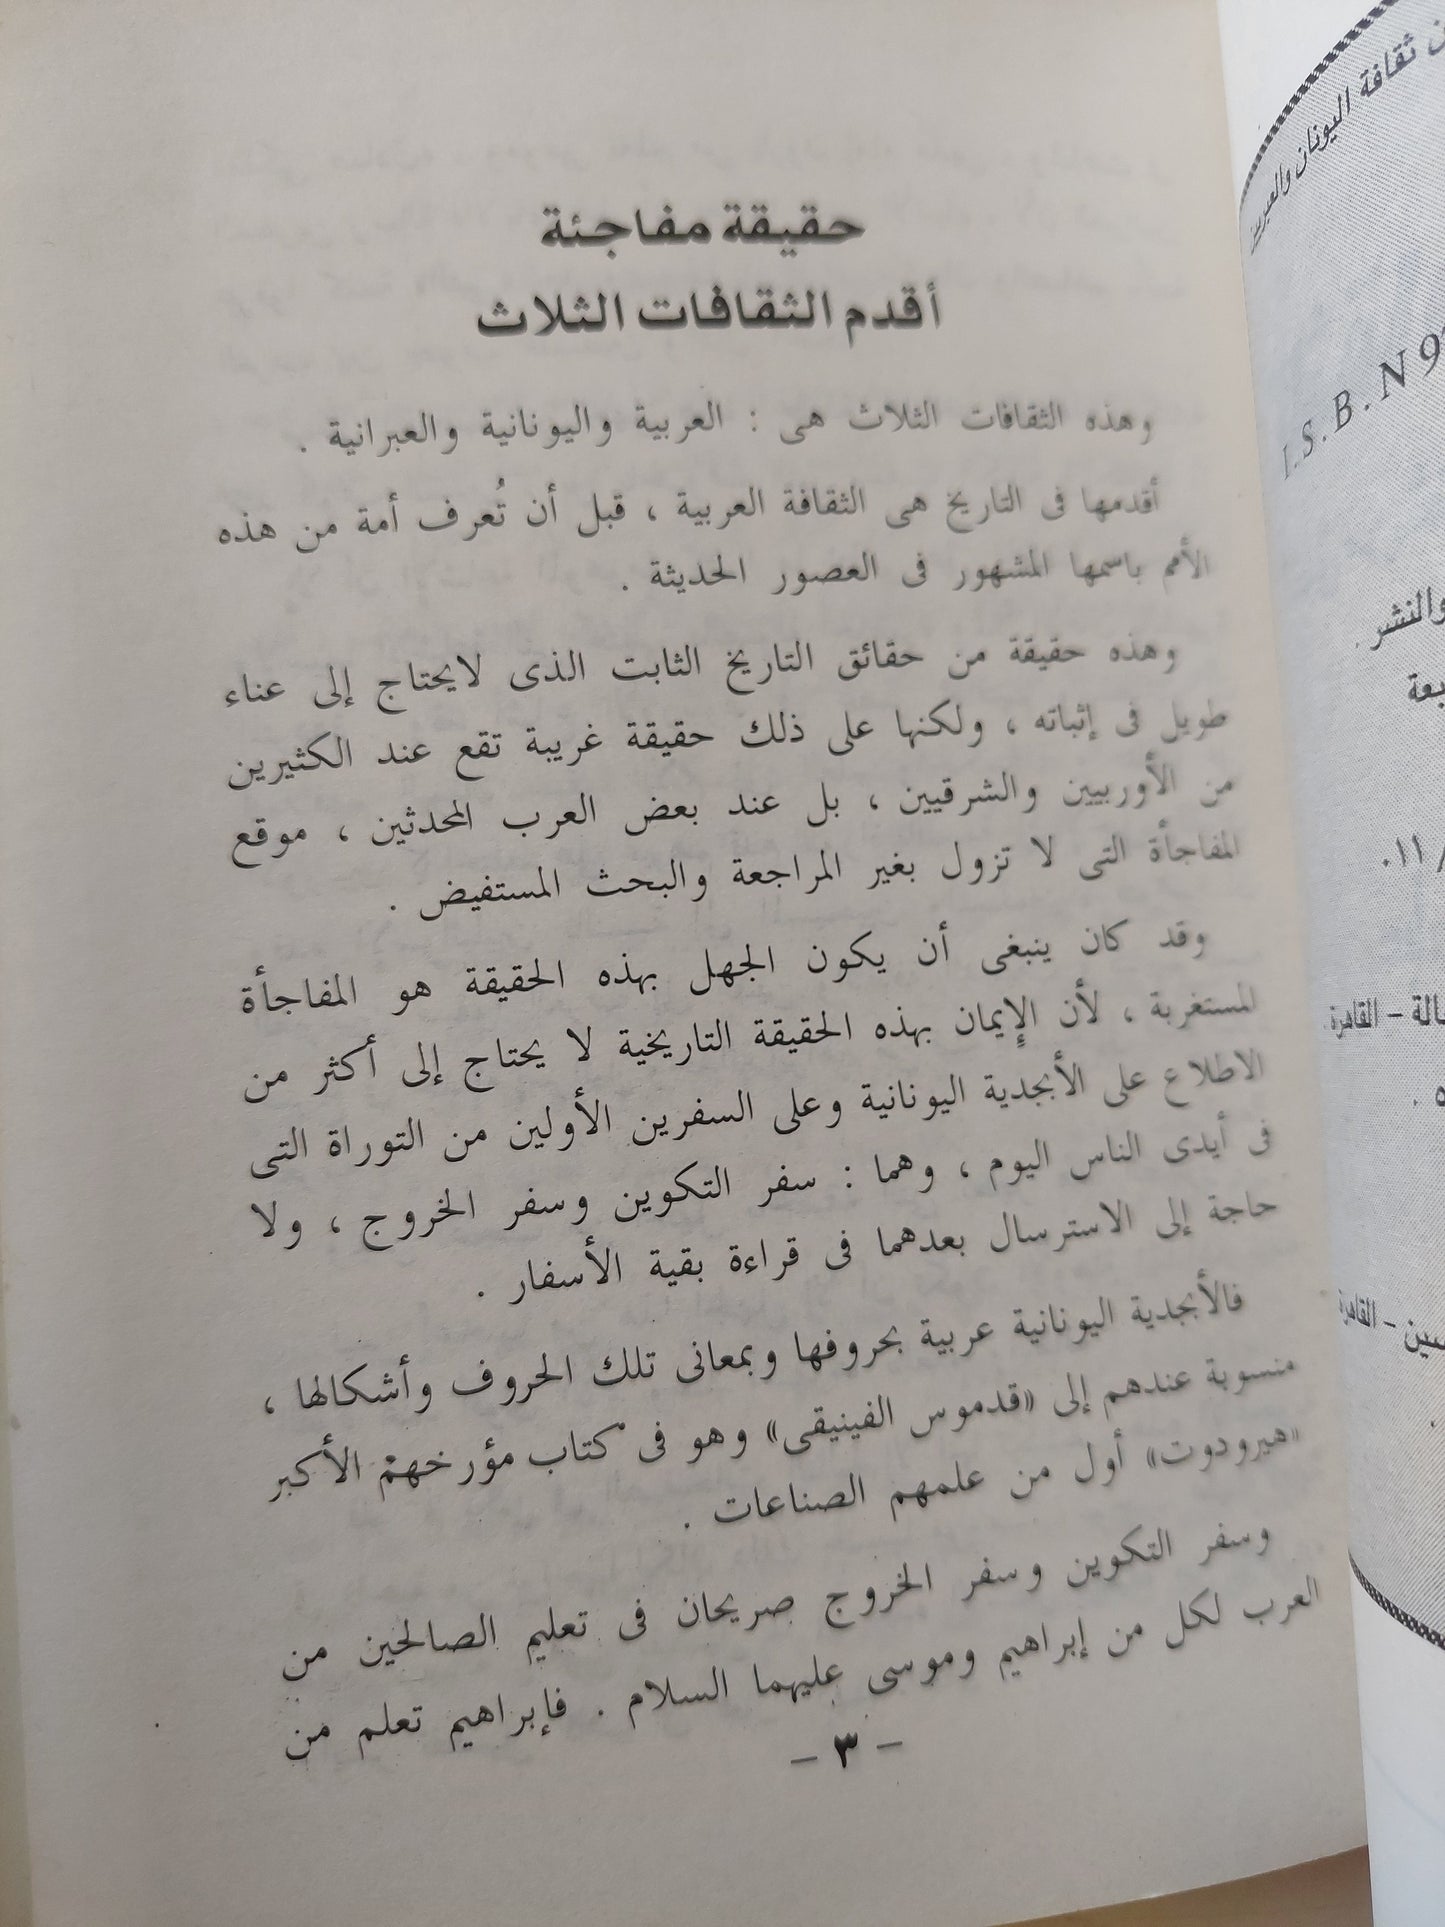 حقيقة مفاجئة
أقدم الثقافات الثلاث
وهذه الثقافات الثلاث هى : العربية واليونانية والعبرانية .
أقدمها فى التاريخ هى الثقافة العربية ، قبل أن تُعرف أمة من هذه
الأمم باسمها المشهور فى العصور الحديثة .
وهذه حقيقة من حقائق التاريخ الثابت الذى لايحتاج إلى عناء
طويل فى إثباته ، ولكنها على ذلك حقيقة غريبة تقع عند الكثيرين
من الأوربيين والشرقيين ، بل عند بعض العرب المحدثين ، موقع
المفاجأة التى لا تزول بغير المراجعة والبحث المستفيض .
وقد كان ينبغى أن يكون الجهل بهذه الحقيقة هو المفاجأة
المستغربة ، لأن الإيمان بهذه الحقيقة التاريخية لا يحتاج إلى أكثر من
الاطلاع على الأبجدية اليونانية وعلى السفرين الأولين من التوراة التى
فى أيدى الناس اليوم ، وهما : سفر التكوين وسفر الخروج ، ولا
حاجة إلى الاسترسال بعدهما فى قراءة بقية الأسفار .
فالأبجدية اليونانية عربية بحروفها وبمعانى تلك الحروف وأشكالها ،
منسوبة عندهم إلى «قدموس الفينيقى» وهو فى كتاب مؤرخهم الأكبر
«هيرودوت» أول من علمهم الصناعات .
وسفر التكوين وسفر الخروج صريحان فى تعليم الصالحين من
العرب لكل من إبراهيم وموسى عليهما السلام . فإبراهيم تعلم من
- ٣ -
ثقافة اليونان والعبريين
I.S.B.N 9
والنشر .
٠١١ /
- القاهرة
- القاهرة